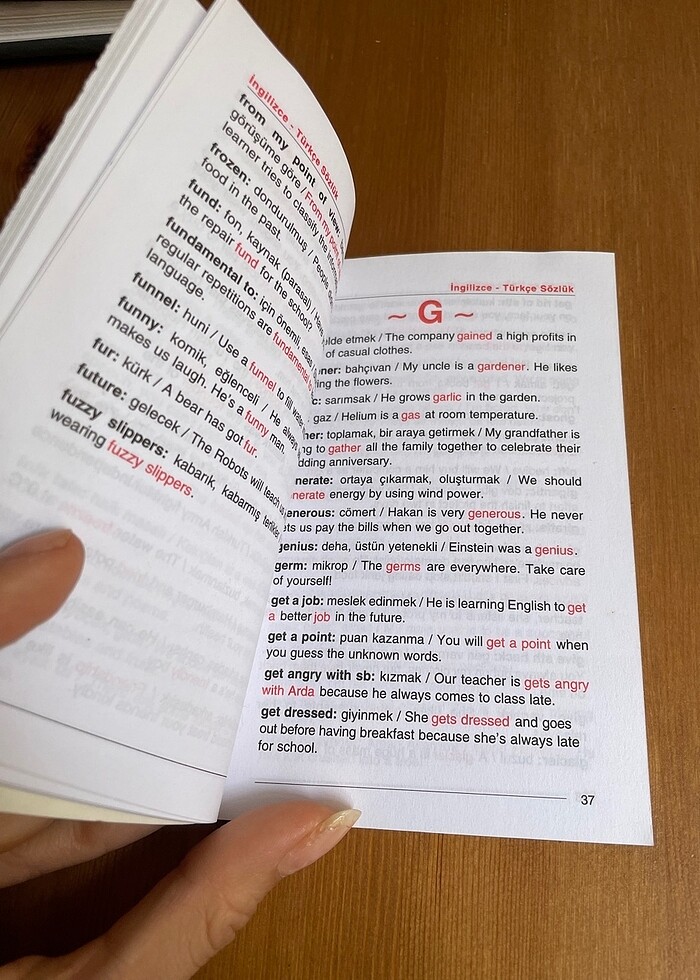 İngilizce - Türkçe Sözlük
from my point of view:
görüşüme göre / From my point
learner tries to classify the
frozen: dondurulmuş / People
food in the past.
fund: fon, kaynak (parasal) /
the repair fund for the school?
fundamental to: için önemli, esas
regular repetitions are fundamental
language.
funnel: huni / Use a funnel to fill
funny: komik, eğlenceli / He always
makes us laugh. He's a funny man.
fur: kürk / A bear has got fur.
future: gelecek / The Robots will teach
fuzzy slippers: kabarık, kabarmış terlikler
wearing fuzzy slippers.
İngilizce - Türkçe Sözlük
~ G ~
elde etmek / The company gained a high profits in
of casual clothes.
bahçıvan / My uncle is a gardener. He likes
the flowers.
sarımsak / He grows garlic in the garden.
gaz / Helium is a gas at room temperature.
toplamak, bir araya getirmek / My grandfather is
to gather all the family together to celebrate their
anniversary.
ortaya çıkarmak, oluşturmak / We should
energy by using wind power.
cömert / Hakan is very generous. He never
us pay the bills when we go out together.
genius: deha, üstün yetenekli / Einstein was a genius.
germ: mikrop / The germs are everywhere. Take care
of yourself!
get a job: meslek edinmek / He is learning English to get
a better job in the future.
get a point: puan kazanma / You will get a point when
you guess the unknown words.
get angry with sb: kızmak / Our teacher is gets angry
with Arda because he always comes to class late.
get dressed: giyinmek / She gets dressed and goes
out before having breakfast because she's always late
for school.
37